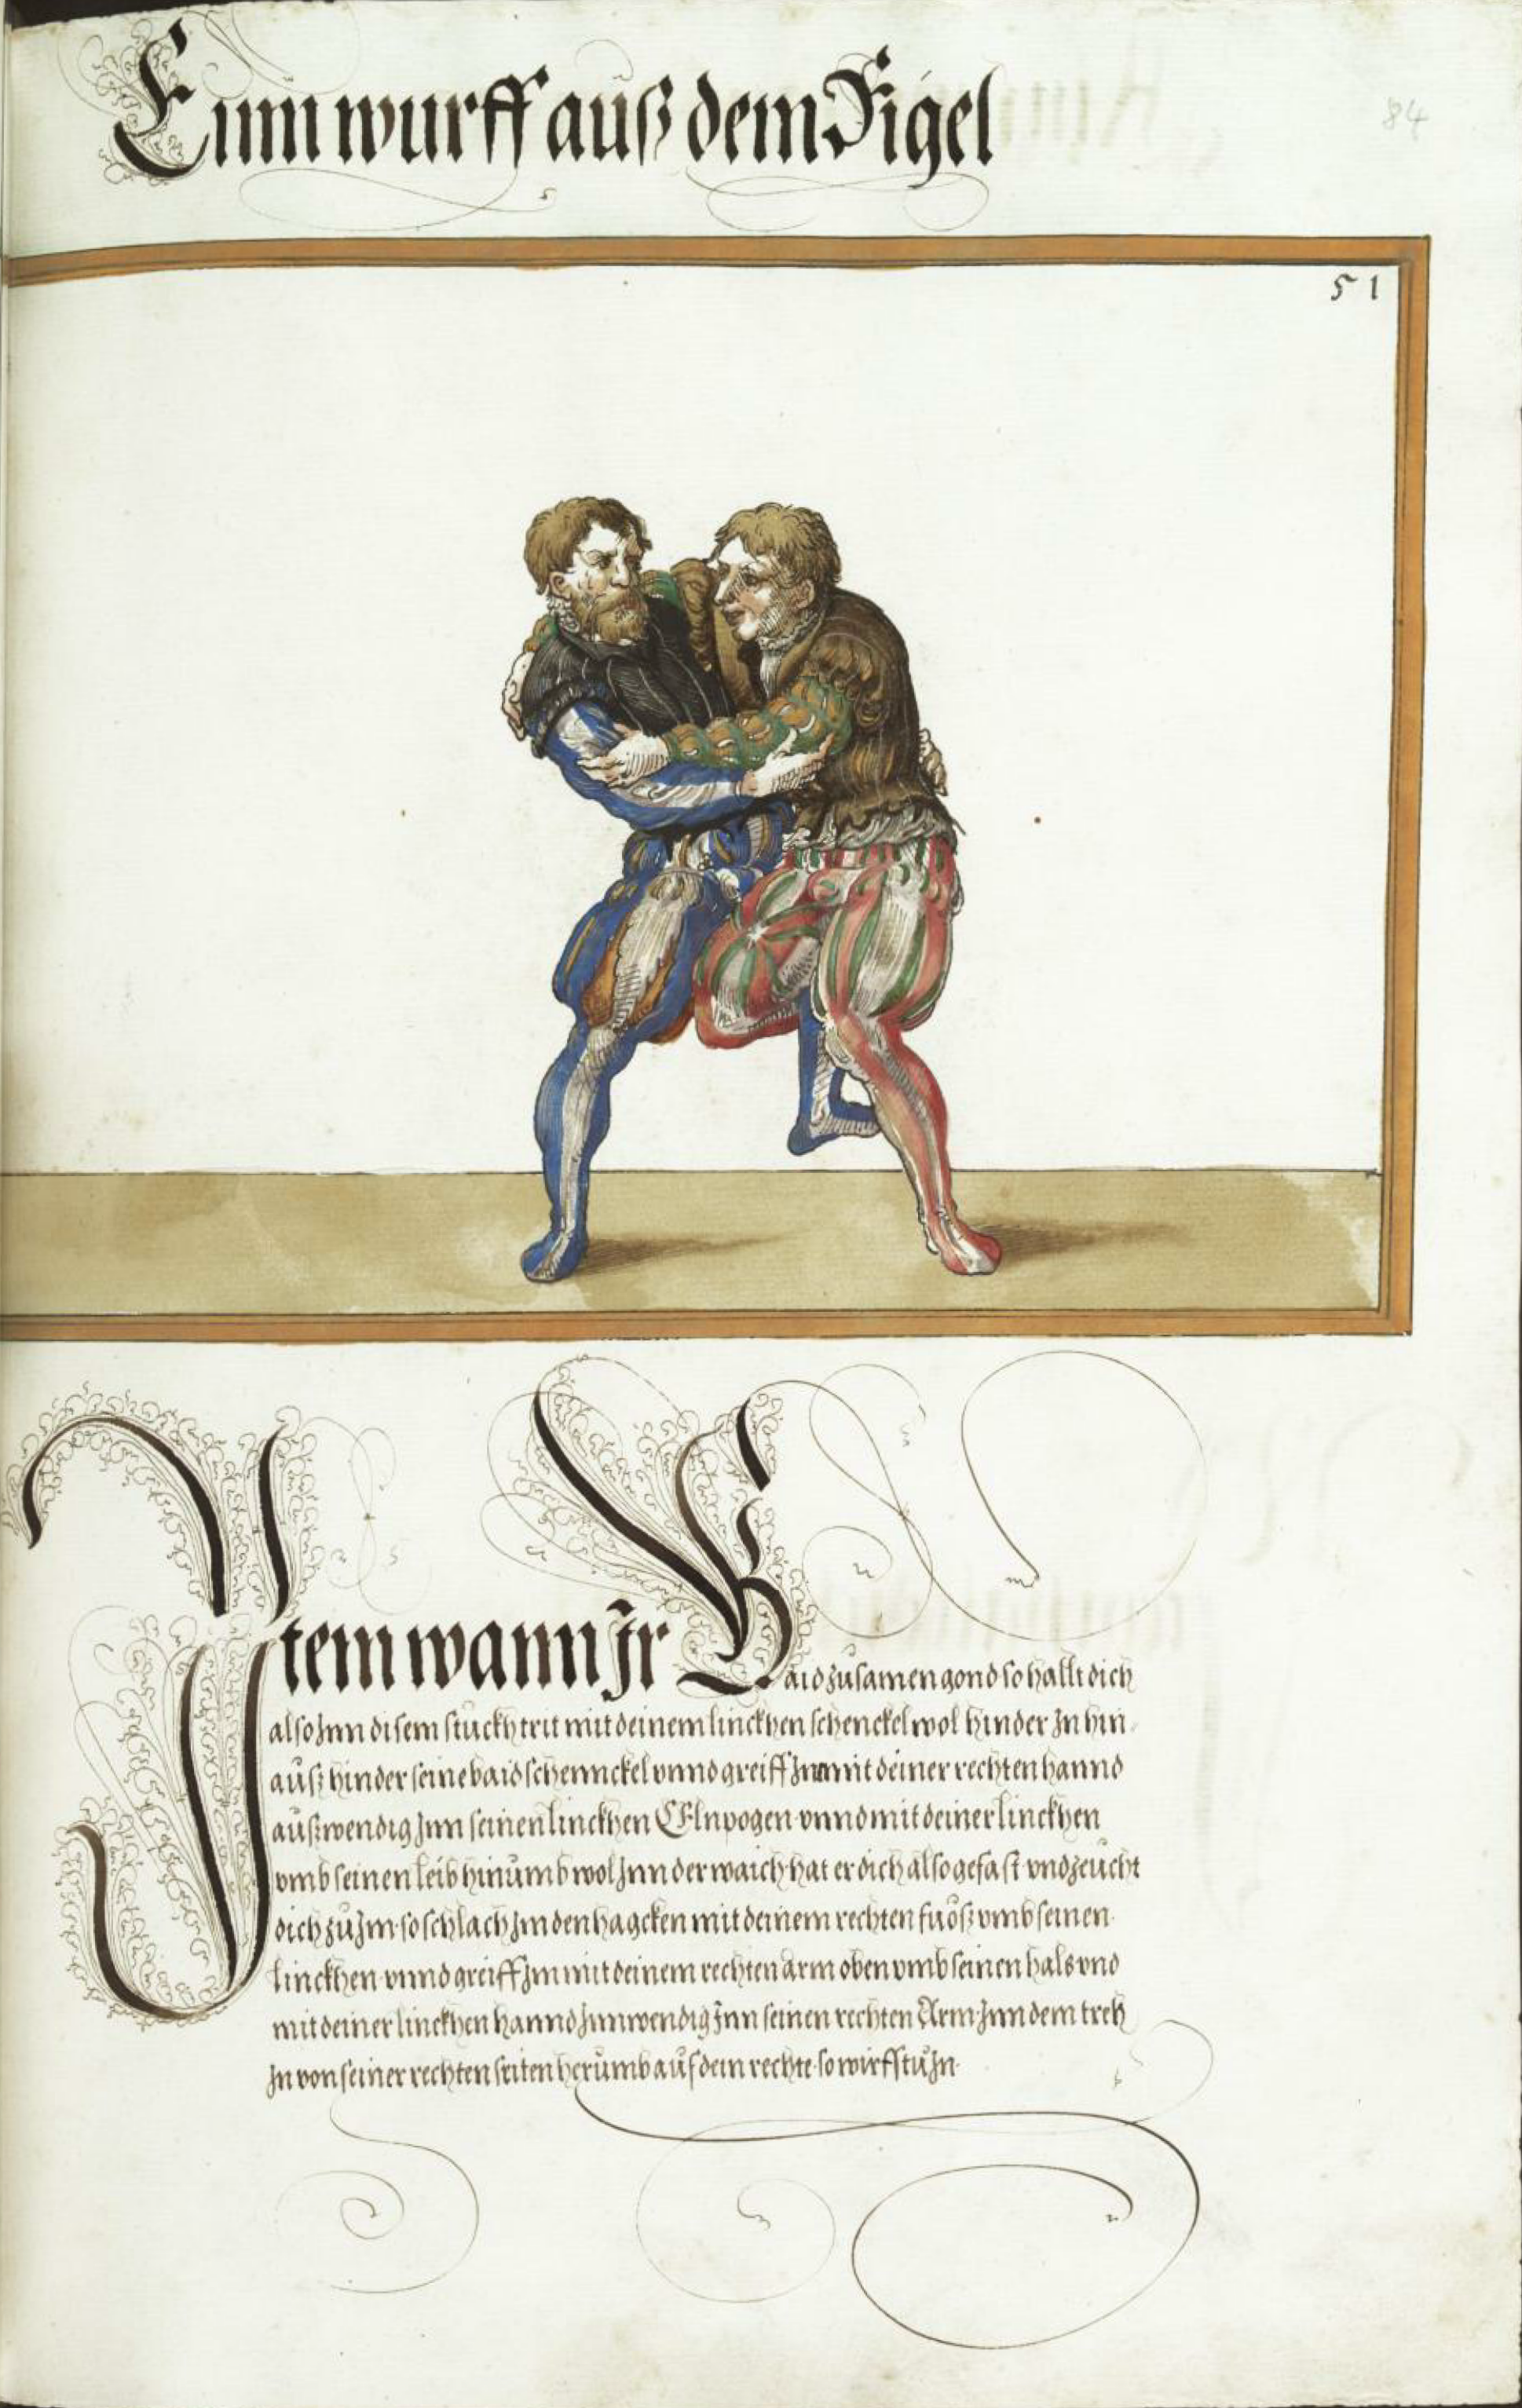 Einn wurff auß dem Rigel
84
51
Item wann Jr Baid zusamen gond so hallt dich
also Jnn disem stuckh trit mit deinem linckhen schenckel wol hinder Jn hin
auß hinder seine baid schennckel vnnd greiff Jnn mit deiner rechten hannd
außwendig Jnn seinen linckhen Elnpogen vnnd mit deiner linckhen
vmb seinen leib hinumb wol Jnn der waich hat er dich also gefast vnd zeucht
dich zu Jm so schlach Jm den hagcken mit deinem rechten fuoß vmb seinen
linckhen vnnd greiff Jm mit deinem rechten arm oben vmb seinen hals vnd
mit deiner linckhen hannd Jnnwendig Jnn seinen rechten Arm Jnn dem treh
Jn von seiner rechten seiten herumb auf dein rechte so wirfstu Jn